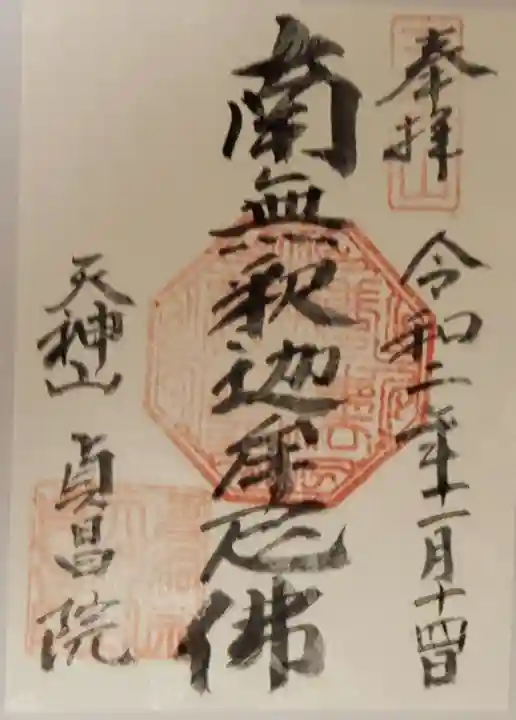 奉拝
令和二年十一月十四日
南無釈迦牟尼佛
天神山
貞昌院